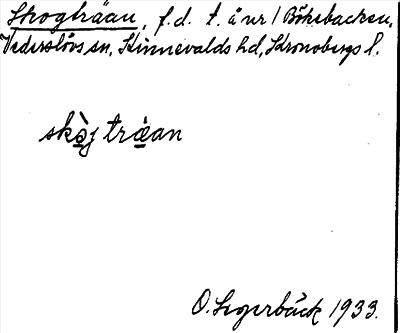 Skogträau, f.d. t. å nr 1 Böksbacken,
Vederslövs sn, Kinnevalds hd, Kronobergs l.
skòj tràan
O. Segerbäck 1933.